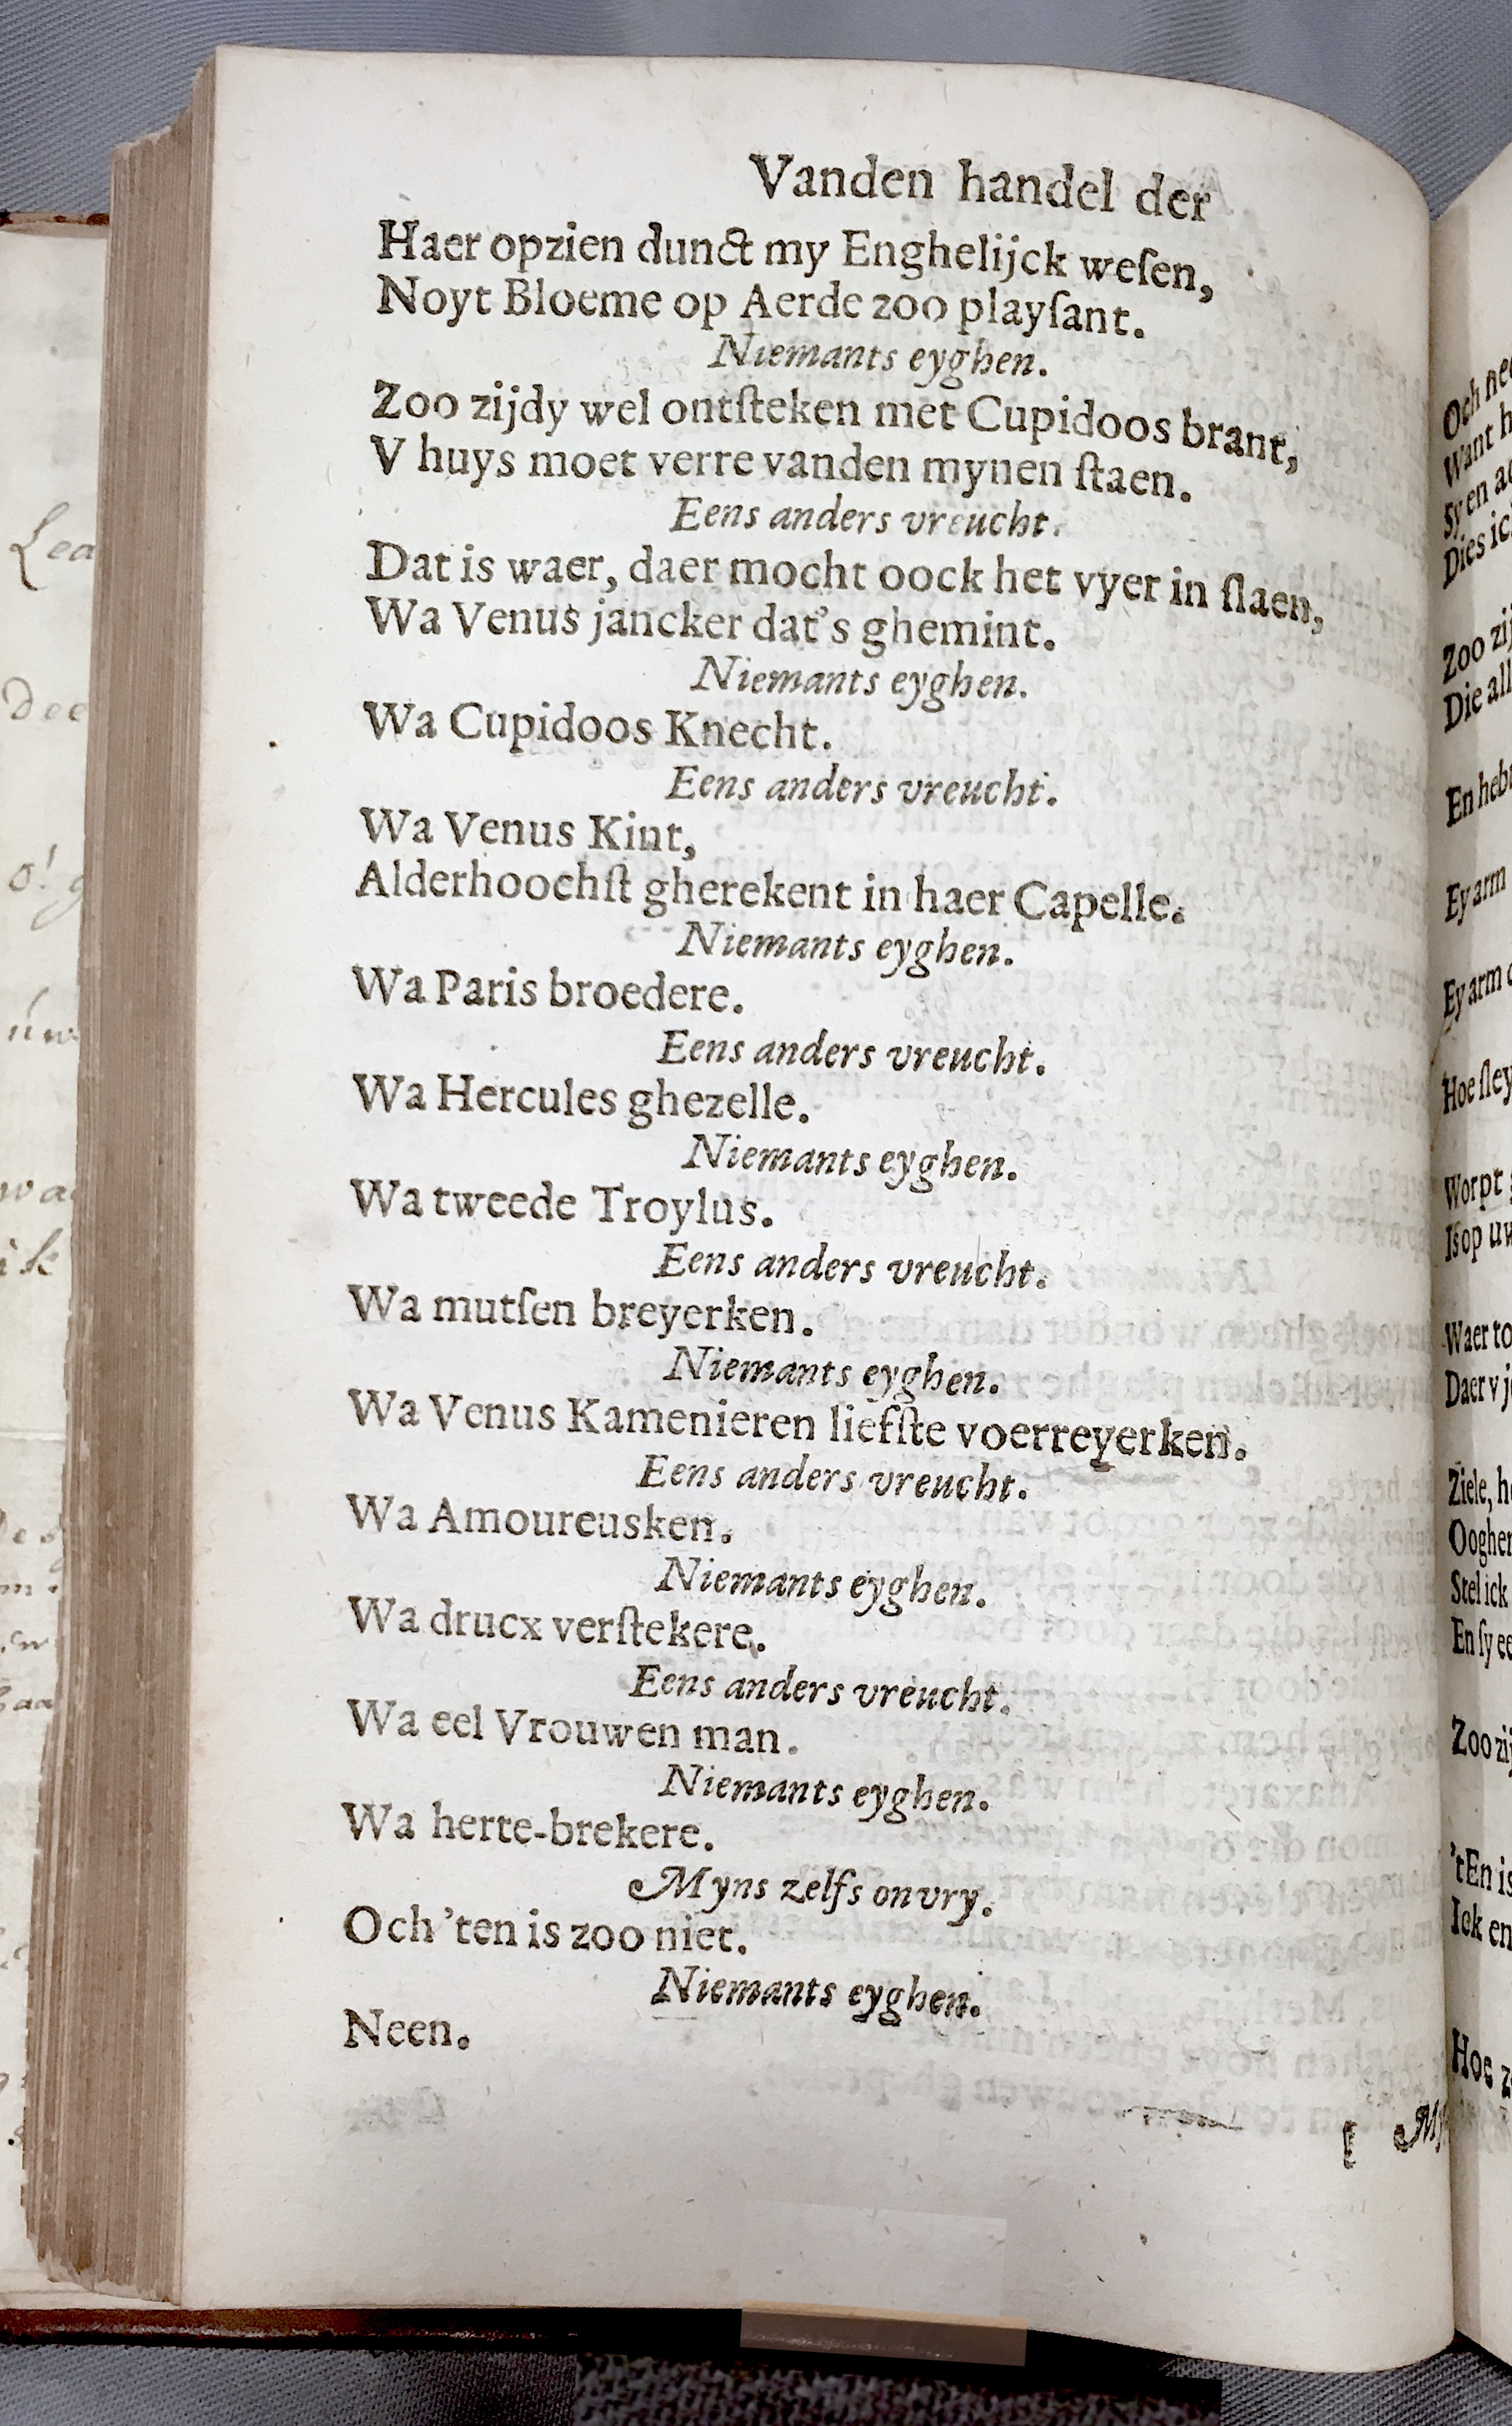 Vanden handel der
Haer opzien dunct my Enghelijck weſen,
Noyt Bloeme op Aerde zoo playſant.
Niemants eyghen.
Zoo zijdy wel ontſteken met Cupidoos brant,
V huys moet verre vanden mynen ſtaen.
Eens anders vreucht.
Dat is waer, daer mocht oock het vyer in ſlaen,
Wa Venus jancker dat's ghemint.
Niemants eyghen.
Wa Cupidoos Knecht.
Eens anders vreucht.
Wa Venus Kint,
Alderhoochſt gherekent in haer Capelle.
Niemants eyghen.
Wa Paris broedere.
Eens anders vreucht.
Wa Hercules ghezelle.
Niemants eyghen.
Wa tweede Troylus.
Eens anders vreucht.
Wa mutſen breyerken.
Niemants eyghen.
Wa Venus Kamenieren liefſte voerreyerken.
Eens anders vreucht.
Wa Amoureusken.
Niemants eyghen.
Wa drucx verſtekere.
Eens anders vreucht.
Wa eel Vrouwen man.
Niemants eyghen.
Wa herte-brekere.
Myns zelfs onvry.
Och 'ten is zoo niet.
Niemants eyghen.
Neen.
Och
Want
Sy en
Dies
Zoo
Die
En
Ey arm
Ey arm
Hoe
Worpt
Is op
Waer
Daer v
Ziele,
Stel ick
En ſy
Zoo
'tEn is
Hoe